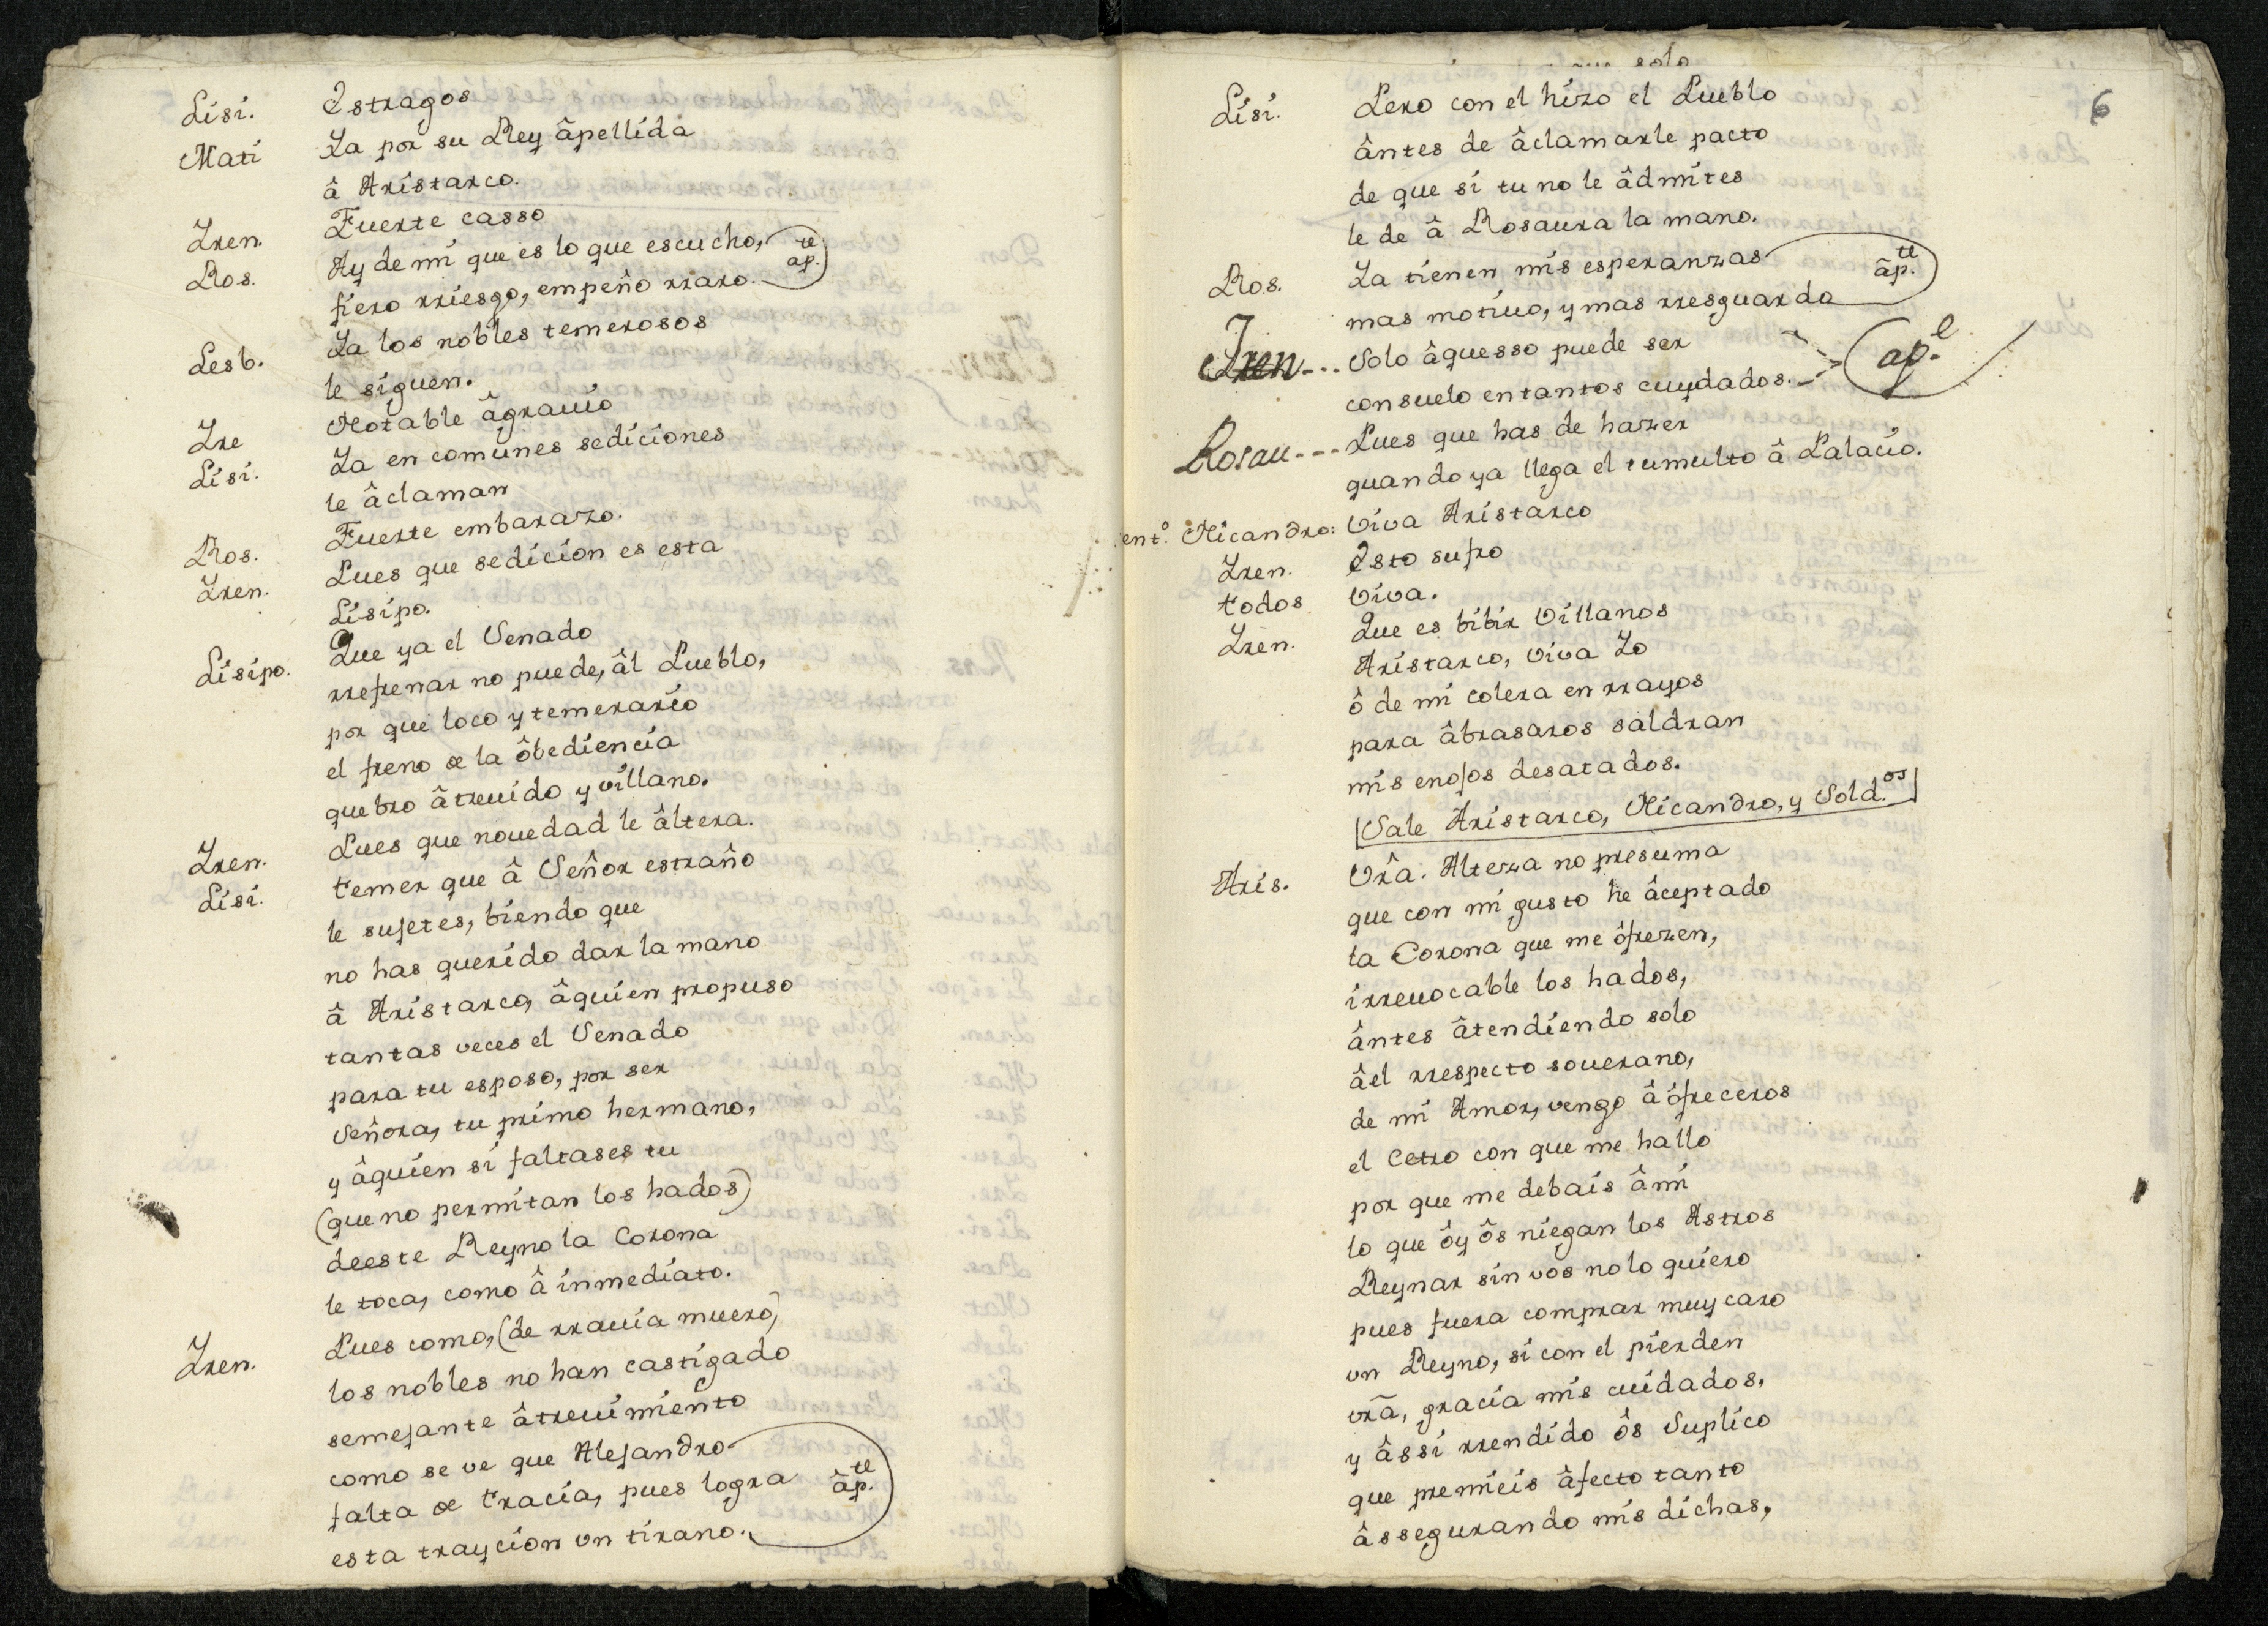 Lisi. Estragos
Mati Ya por su Rey âpellida
â Aristarco.
Yren. Fuerte casso
Ros. Ay de mi que es lo que escucho, ap.te
fiero rriesgo, empeño rraro.
Lesb. Ya los nobles temerosos
le siguen.
Yre Notable âgrauio
Lisi. Ya en comunes sediciones
le âclaman
Ros. Fuerte embarazo.
Yren. Pues que sedicion es esta
Lisipo.
Lisipo. Que ya el Senado
rrefrenar no puede, âl Pueblo,
por que loco y temerario
el freno de la ôbediencia
quebro âtreuido y villano.
Yren. Pues que nouedad le âltera.
Lisi. temer que â Señor estraño
le sujetes, biendo que
no has querido dar la mano
â Aristarco, âquien propuso
tantas veces el Senado
para tu esposo, por ser
Señora, tu primo hermano,
y âquien si faltases tu
(que no permitan los hados)
deeste Reyno la Corona
le toca, como â inmediato.
Yren. Pues como, (de rrauia muero)
los nobles no han castigado
semejante âtreuimiento
como se ve que Alejandro
falta de tracia, pues logra âp.te
esta traycion vn tirano.
6
solo
Lisi. Pero con el hizo el Pueblo
ântes de âclamarle pacto
de que si tu no le âdmites
le de â Rosaura la mano.
Ros. Ya tienen mis esperanzas âp.te
mas motiuo, y mas rresguardo
Yren--- Solo âquesso puede ser ap.e
consuelo en tantos cuydados.
Rosau--- Pues que has de hazer
quando ya llega el tumulto â Palacio.
ent.o Nicandro: Viva Aristarco
Yren. Esto sufro
todos Viva.
Yren. Que es bibir Villanos
Aristarco, viva Yo
ô de mi colera en rrayos
para âbrasaros saldran
mis enojos desatados.
Sale Aristarco, Nicandro, y Sold.os
Aris. Vrâ. Alteza no presuma
que con mi gusto he âceptado
la Corona que me ôfrezen,
irreuocable los hados,
ântes âtendiendo solo
âel rrespecto souerano,
de mi Amor, vengo â ôfreceros
el Cetro con que me hallo
por que me debais â mi
lo que ôy ôs niegan los Astros
Reynar sin vos no lo quiero
pues fuera comprar muy caro
vn Reyno, si con el pierden
vrã, gracia mis cuidados,
y âssi rrendido ôs Suplico
que premieis âfecto tanto
âssegurando mis dichas,